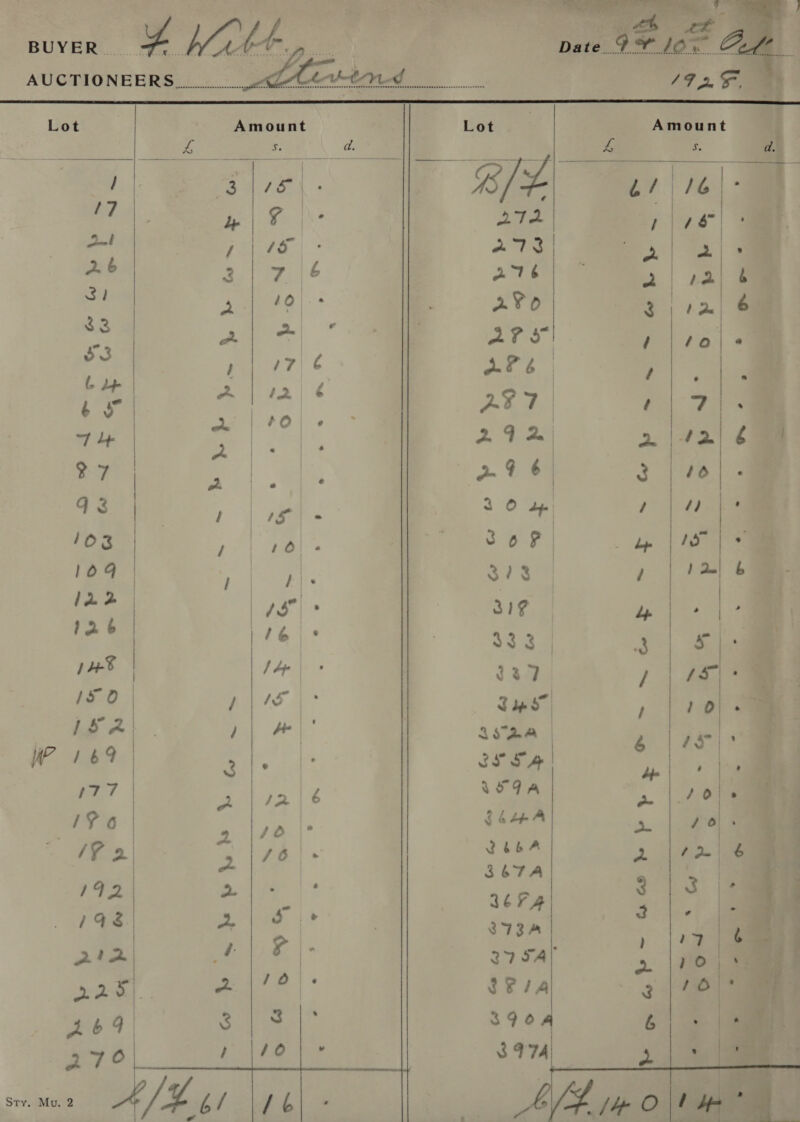 BUYER F. Webb. Date 9th 10th Oct.
AUCTIONEERS Stevens 1928.
Lot Amount Lot Amount
£ s. d. £ s. d.
1 3 15 - B/F 61 16 -
17 4 8 - 272 1 15 -
21 1 15 - 273 2 2 -
26 3 7 6 276 2 12 6
31 2 10 - 280 3 12 6
33 2 2 - 285 1 10 -
53 1 17 6 286 1 - -
64 2 12 6 287 1 7 -
65 2 10 - 292 2 12 6
74 2 - - 296 3 10 -
87 2 - - 304 1 11 -
93 1 15 - 308 4 15 -
103 1 10 - 313 1 12 6
109 1 1 - 318 4 - -
122 15 - 333 3 5 -
126 16 - 337 1 15 -
148 14 - 345 1 10 -
150 1 15 - 352A 6 15 -
152 1 4 - 355A 4 - -
169 3 - - 359A 2 10 -
177 2 12 6 364A 2 10 -
180 2 10 - 366A 2 12 6
182 2 10 - 367A 3 3 -
192 2 - - 368A 3 - -
193 2 5 - 373A 1 17 6
212 1 8 - 375A 2 10 -
225 2 10 - 381A 3 10 -
269 3 3 - 390A 6 - -
270 1 10 - 397A 2 - -
Sty. Mu. 2 C/F 61 16 - C/F. 140 14 -